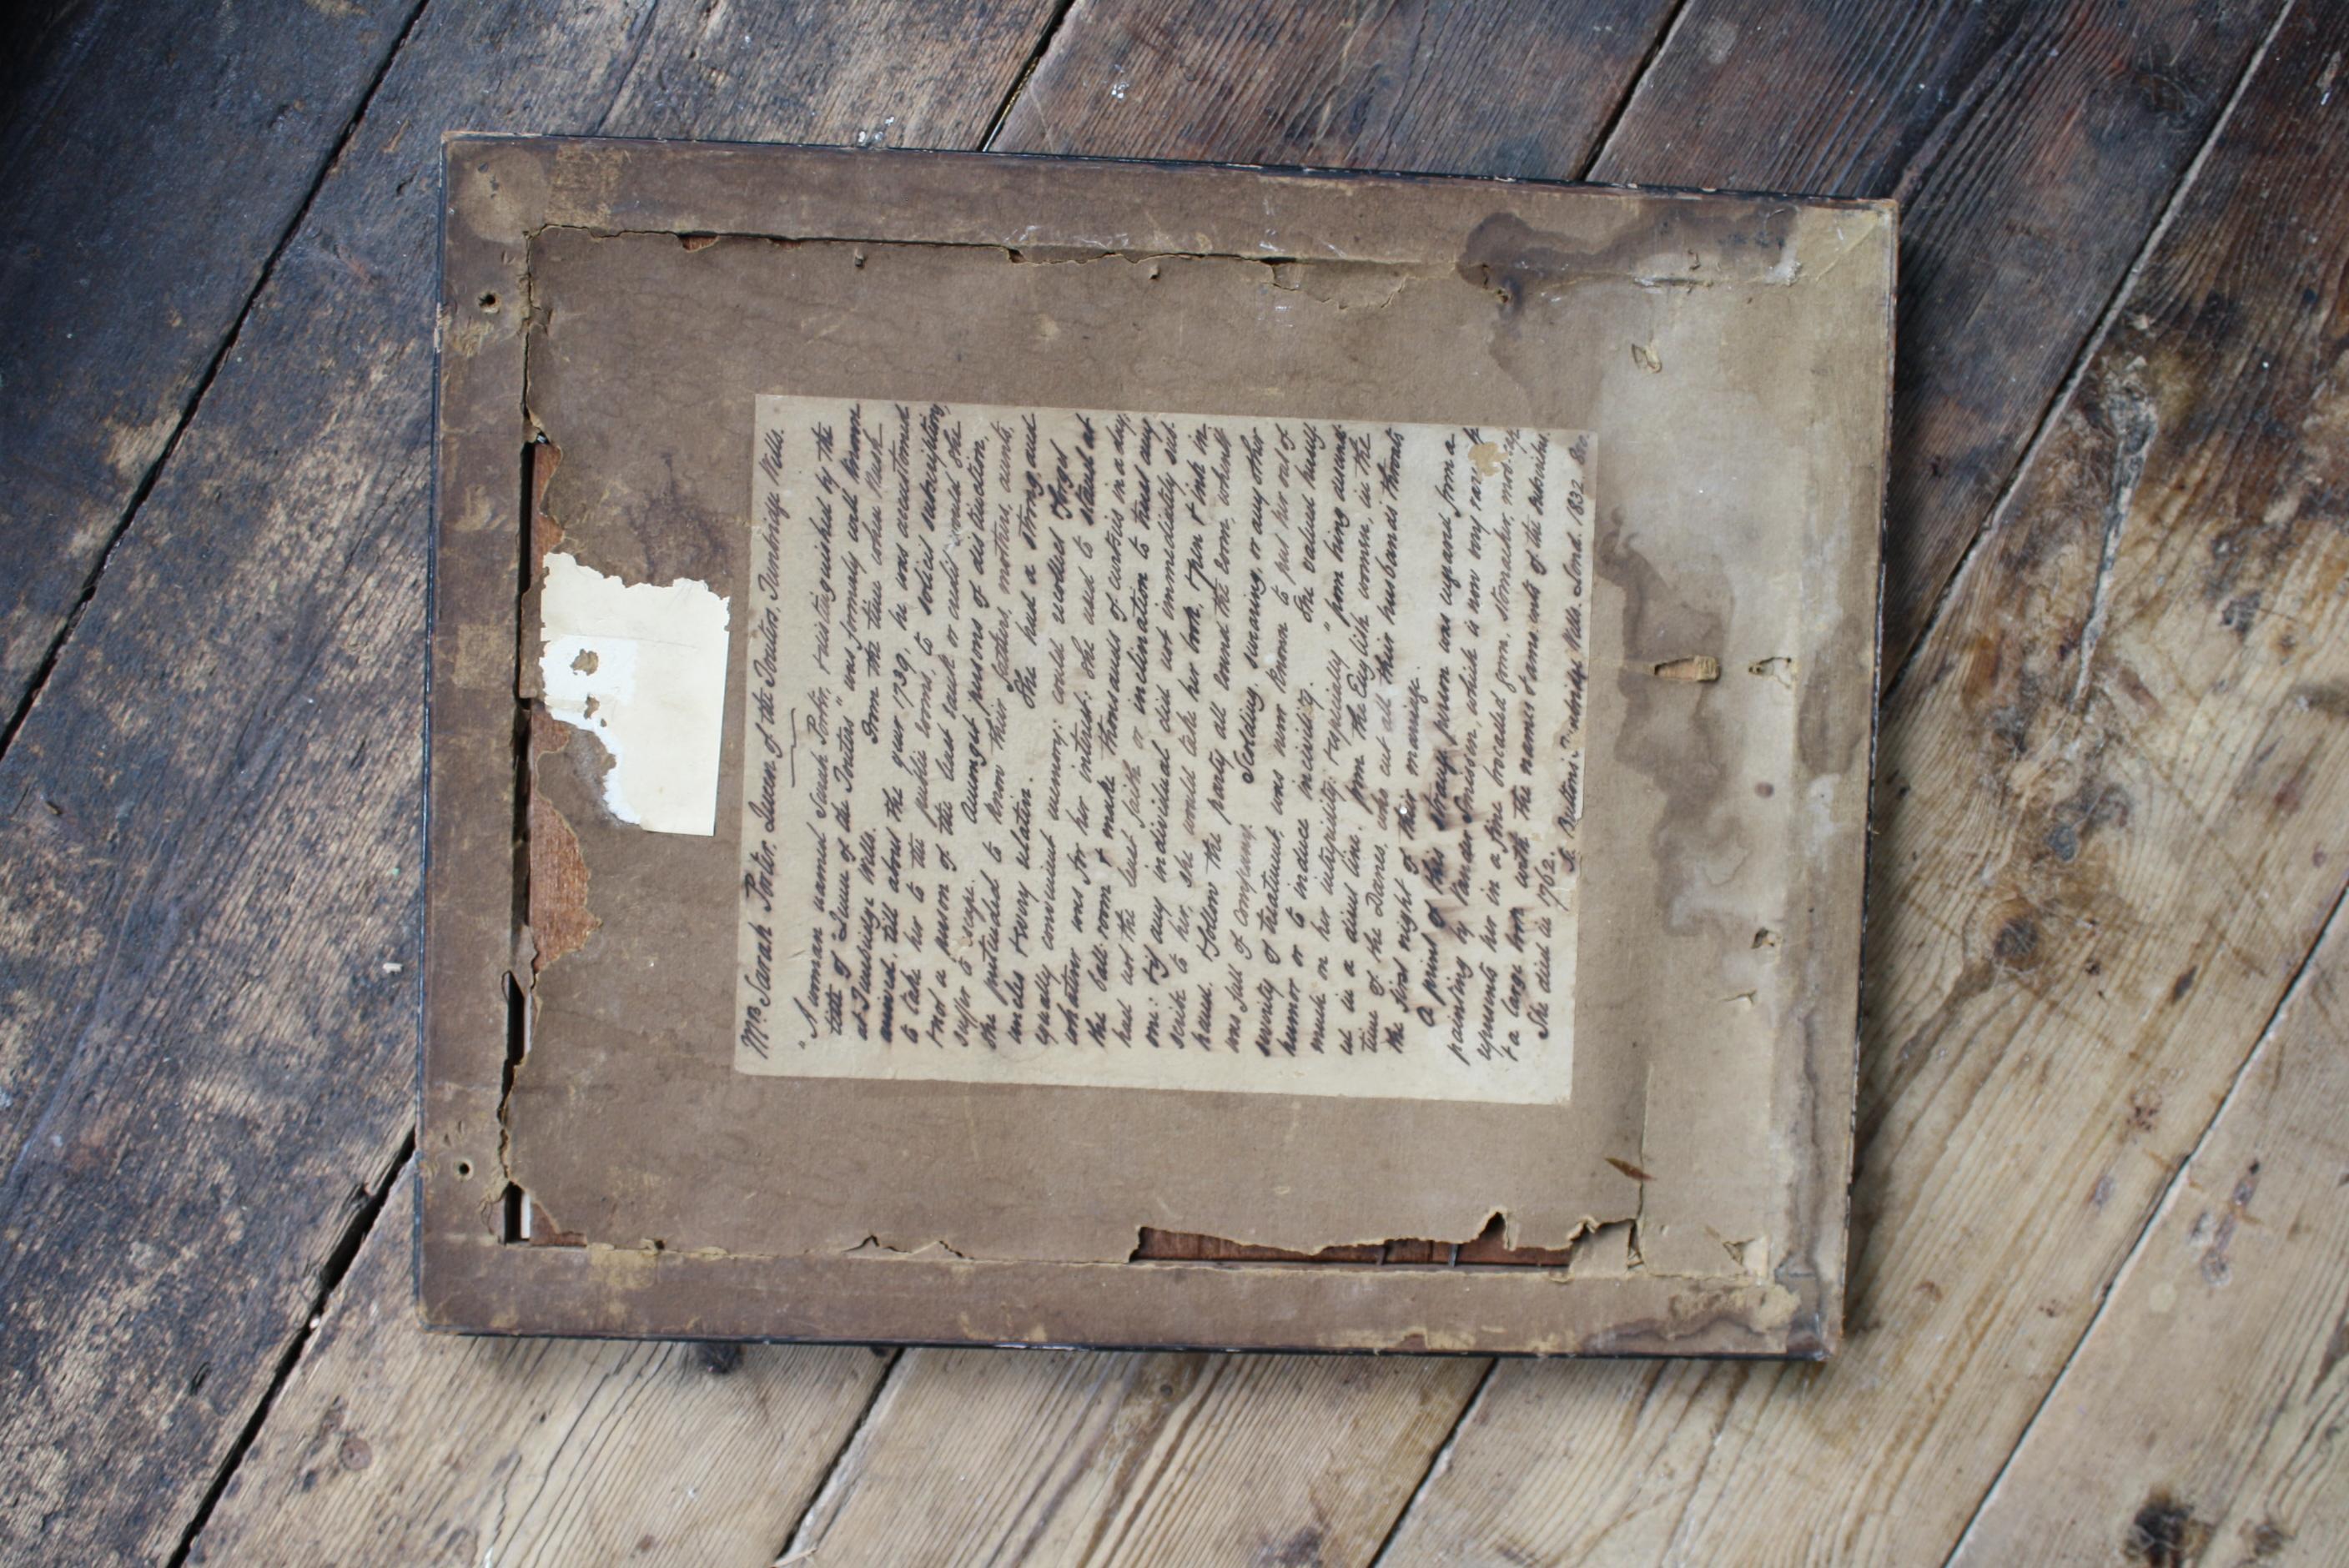 Mrs Sarah Porter, Queen of the Touters, Tunbridge Wells.
"A woman named Sarah Porter, & distinguished by the
title of "Queen of the Touters" was formerly well known
at Tunbridge Wells. From the time when Nash
arrived, till about the year 1739, he was accustomed
to take her to the public rooms, to solicit subscriptions,
& not a person of the least rank or credit would she
suffer to escape. Amongst persons of distinction,
she pretended to know their fathers, mothers, aunts,
uncles & every relation. She had a strong and
equally convenient memory; could recollect & forget
whatever was for her interest: she used to stand at
the ball-room & make thousands of curtsies in a day,
had not the least faith or inclination to trust any
one: & if any individual did not immediately sub-
scribe to her, she would take her book, & pen & ink in
hand. & follow the party all round the room, when it
was full of company. Scolding, swearing, or any other
severity of treatment was never known to put her out of
humor or to induce incivility. She valued herself
much on her intrepidity, & especially "from being descended
in a direct line, from the English women, in the
time of the Danes, who cut all their husbands throats
the first night of their marriage.
A print of this strange person was engraved from a
painting by Vander Smissen, which is now very rare. It
represents her in a fine brocaded gown, stomacher, mob-cap
& a large book with the names & amounts of the subscribers
She died in 1762.
Britton's Tunbridge Wells. Lond. 1832 8vo.